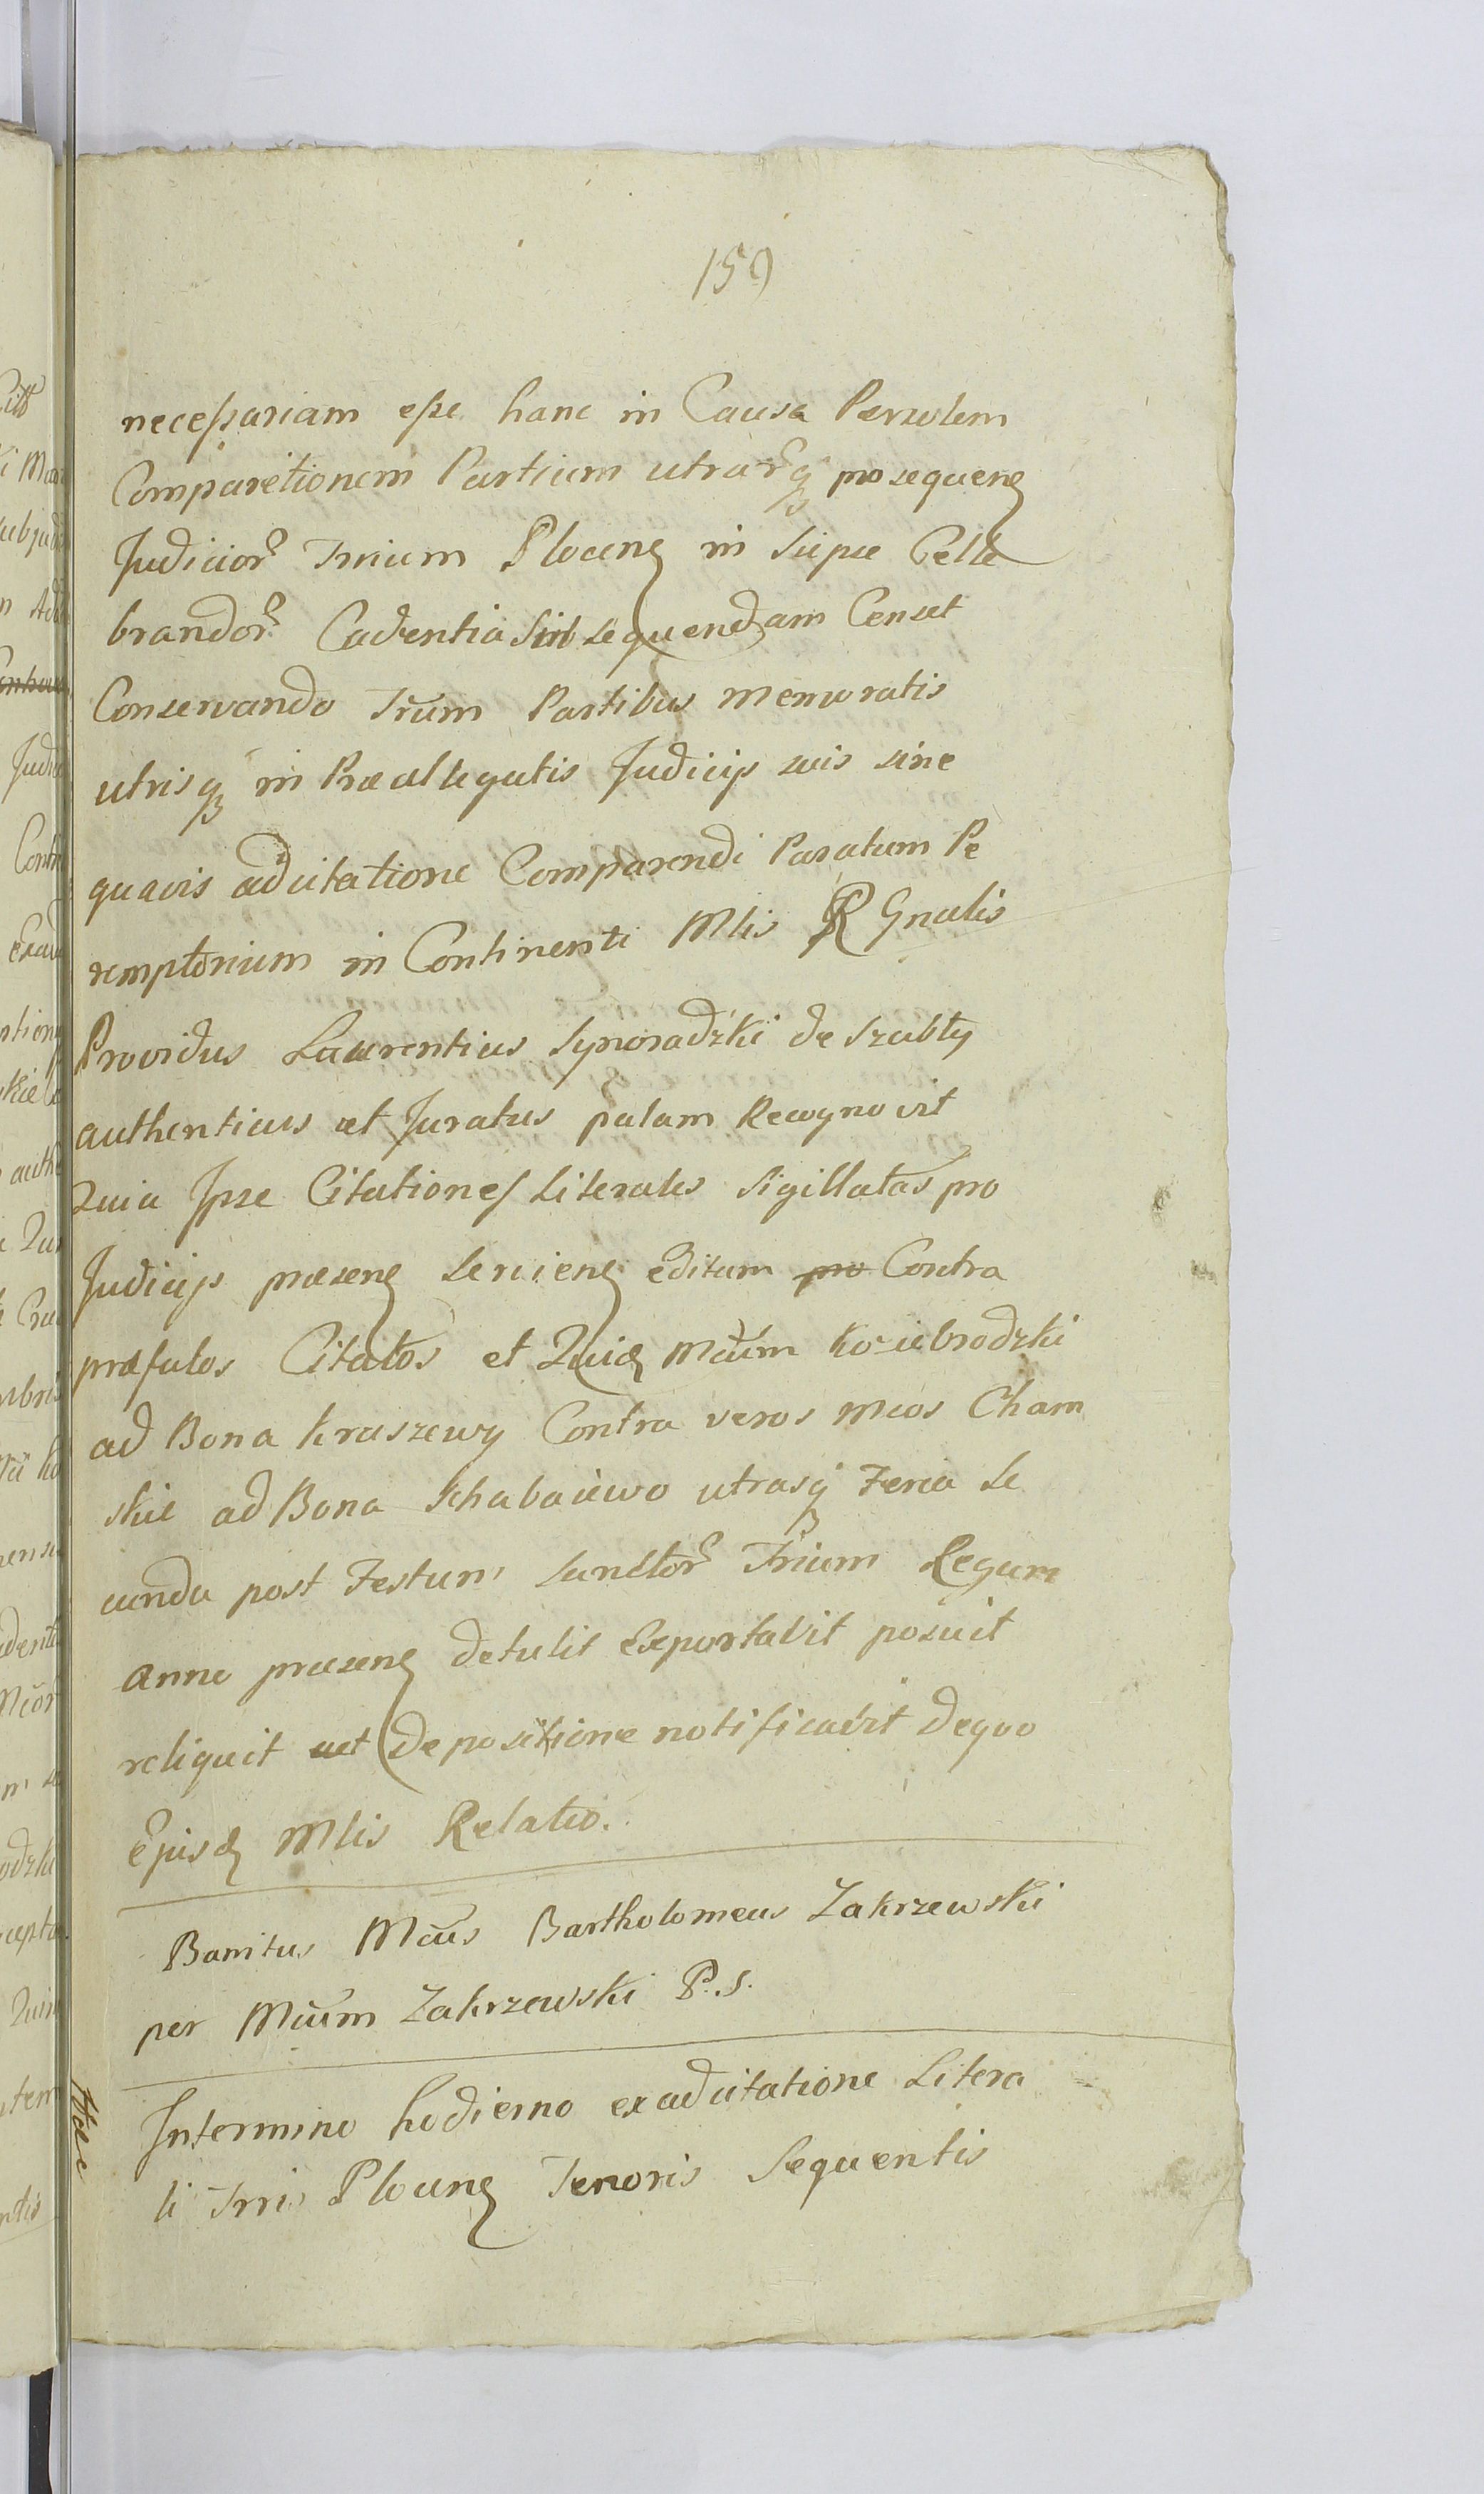 159
necessariam esse hanc in Causa Personalem
Comparitionem Partium utrarq3 pro sequen
Judicior Trrium Plocen in Sierpce Celle
brandor Cadentia Subsequendam Censet
Conservando Trum Partibus memoratis
utrisq3 in Praeallegatis Judicijs suis sine
quavis adcitatione Comparendi Paratum Pe
remptorium in Continenti Mlis R Gnalis
Providus Laurentius Synoradzki de Szubły
authenticus et Juratus palam Recognovit
Quia Ipse Citationes Literales Sigillatas pro
Judicijs praesen servien editum pro Contra
praefatos Citatos et Quid Mcum Koziebrodzki
ad Bona Kraszewy Contra veros Mcos Cham
skie ad Bona Schabaiewo utrasq3 Feria Se
cunda post Festum Sanctor Trium Regum
Anno praesen detulit Exportavit posuit
reliquit et de positione notificavit de quo
Ejusd Mlis Relatio.
Banitus Mcus Bartholomeus Zakrzewski
per Mcum Zakrzewski P. S.
In termino hodierno ex adcitatione Litera
li Trri Plocen Tenoris Sequentis